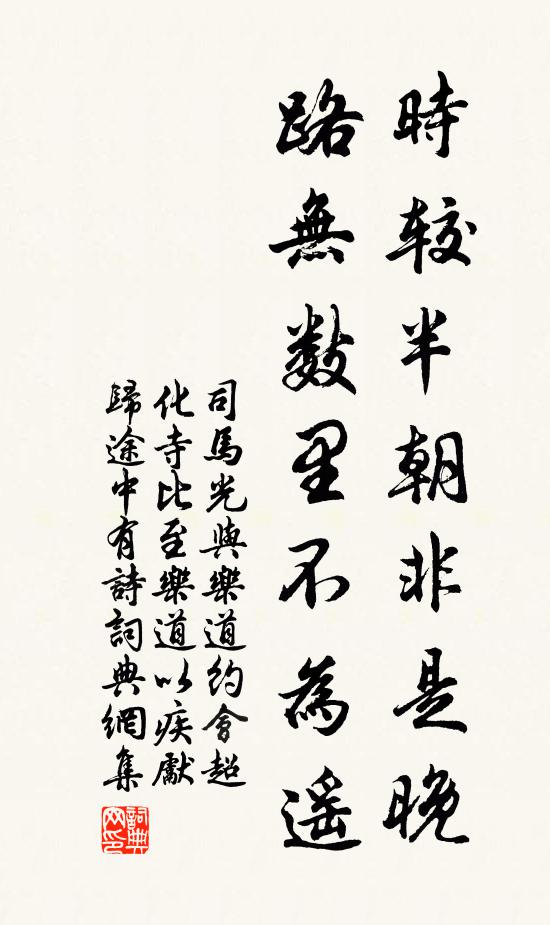 時較半朝非是晚
路無數里不為遥
司馬光與樂道約會超
化寺比至樂道以疾獻
歸途中有詩詞典網集
詞典网印